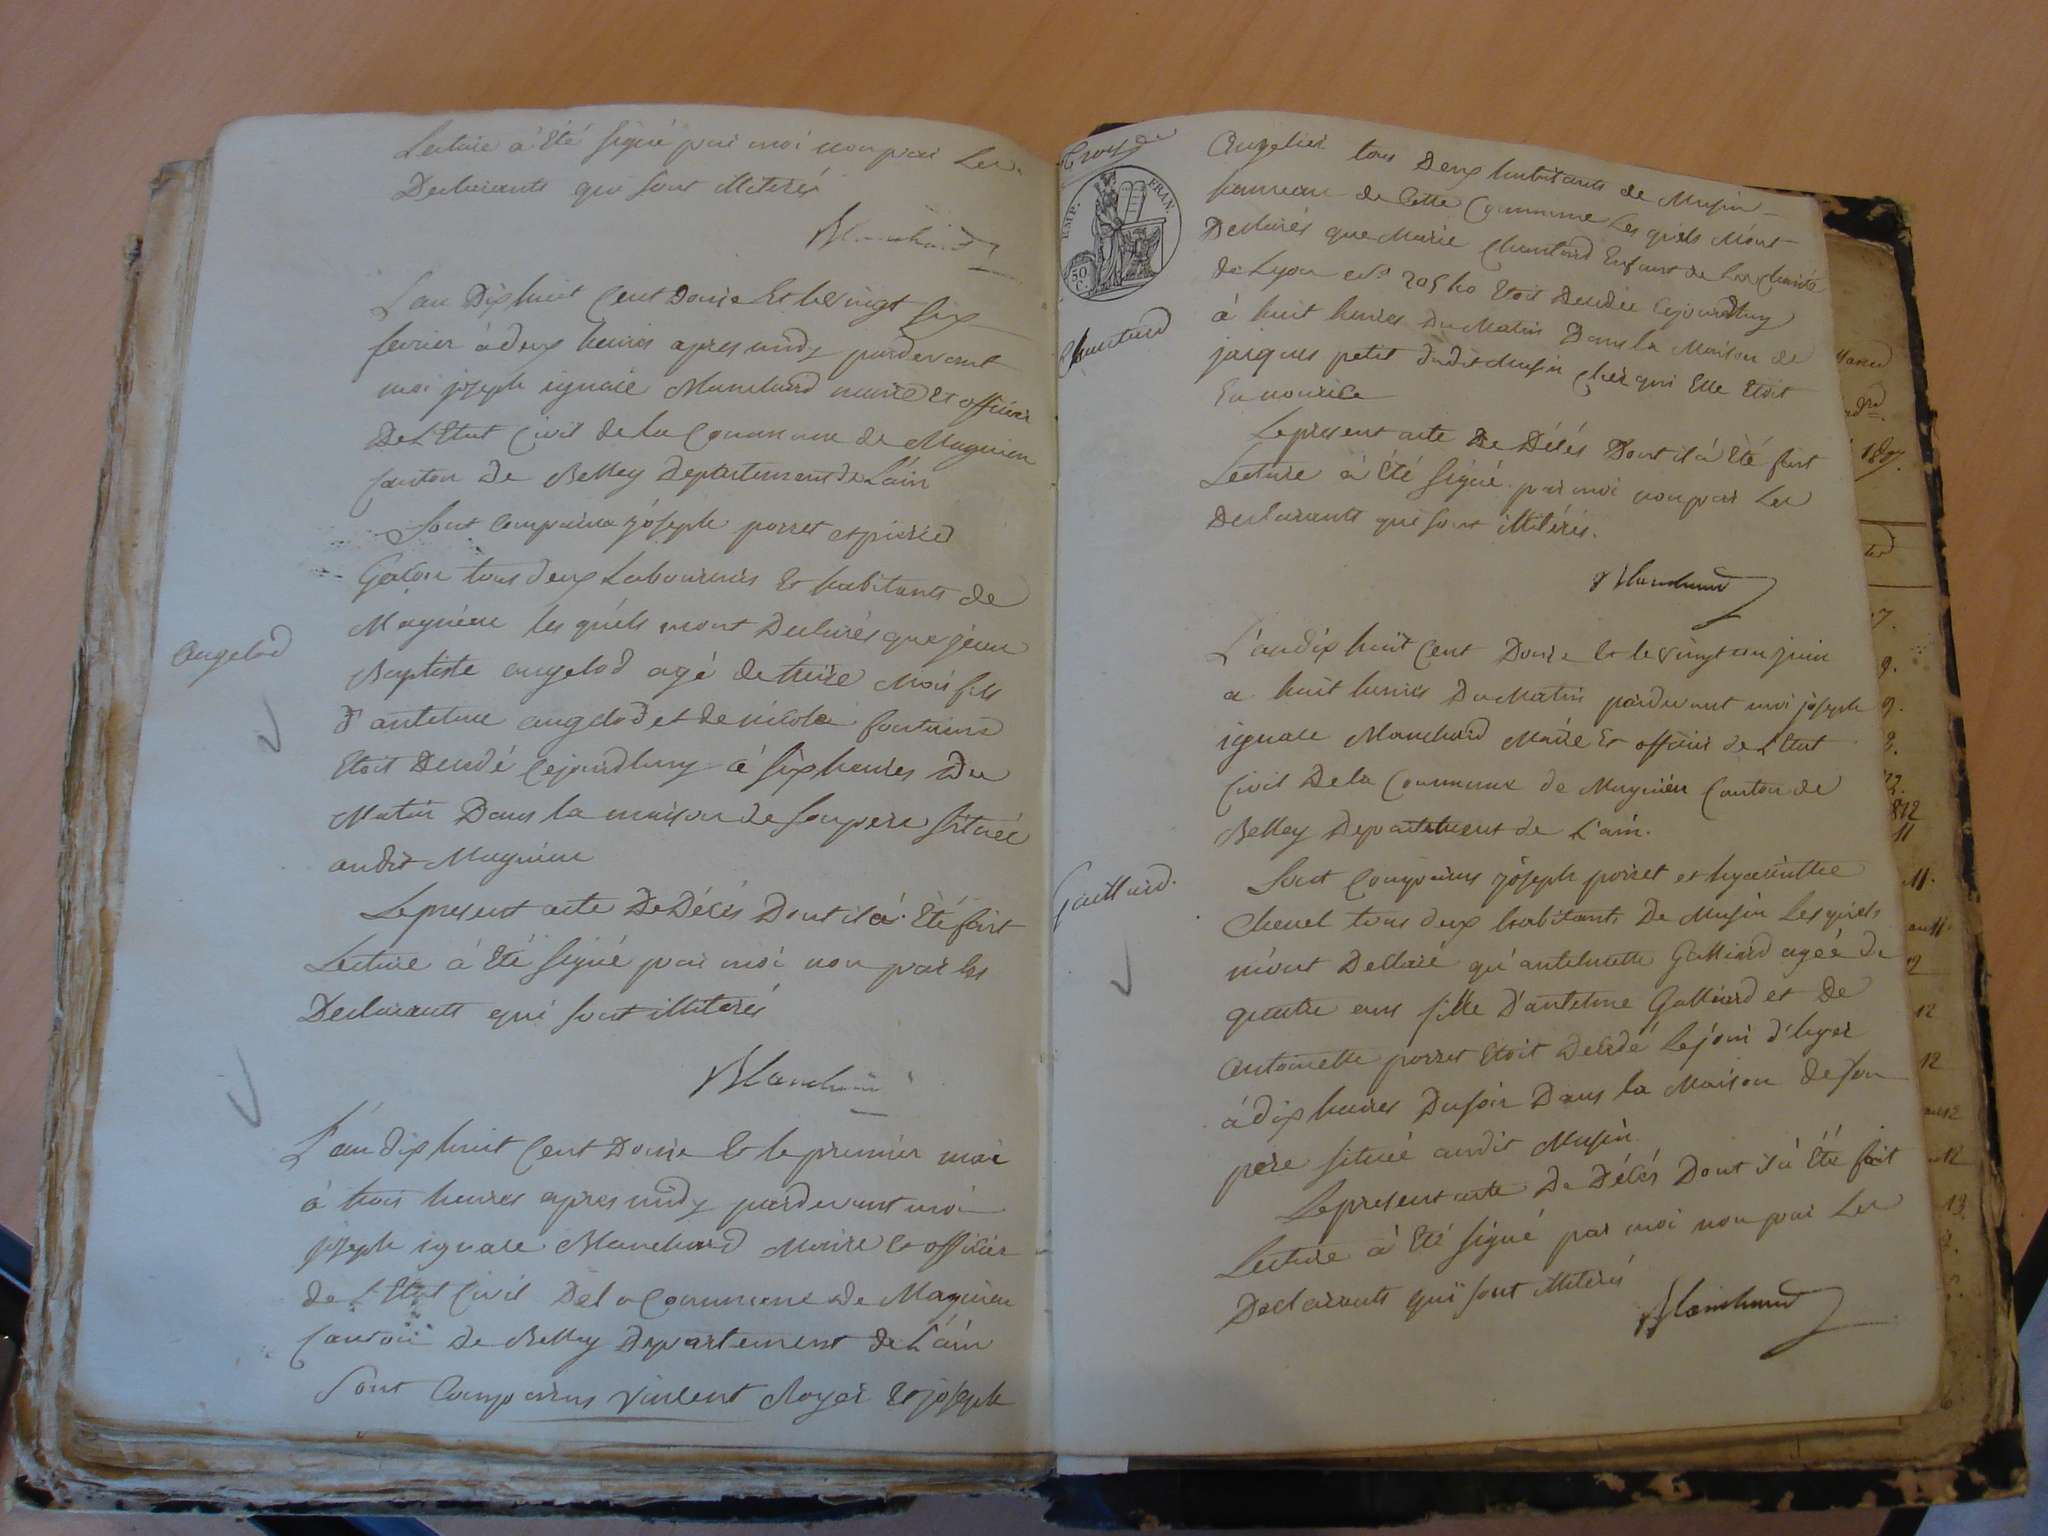 Lecture à Eté signé par moi non par Les
Declarants qui sont illiterés
Blanchard
L'an Dix huit Cent Douse Et le vingt six
fevrier à deux heures apres midy pardevant
moi joseph ignace Blanchard maire Et officier
De L'Etat Civil de la Commune de Magnieu
Canton De Belley Departement de L'ain
Sont Comparus joseph porret et pierre
tous deux Laboureurs Et habitants de
Magnieu les quéls mont Declarés que jean
Angelod
Baptiste angelod agé de treize Mois fils
D'antelme angelod et de nicole fontaine
Etoit Decedé Cejourdhuy à six heures Du
Matin Dans la maison de son pere située
audit Magnieu
Le present acte De Décés Dont il à Eté fait
Lecture à Eté signé par moi non par les
Declarants qui sont illiterés
Blanchard
L'an dix huit Cent Douse Et le premier mai
à trois heures apres midy pardevant moi
joseph ignace Blanchard Maire Et officier
de L'Etat Civil De la Commune de Magnieu
Canton De Belley Departement de L'ain
Sont Comparus vincent Royer Et joseph
EMP. FRAN.
50 C.
tous Deux habitants de Musin
hameau de Cette Commune Les quels M'ont
Declarés que Marie Chantard Enfant de La Charité
de Lyon Etoit Decedée Cejourdhuy
Chantard
à huit heures Du Matin Dans la Maison de
jacques petit dudit Musin Chéz qui Elle Etoit
En nourice
Le present acte De Décés Dont il à Eté fait
Lecture à Eté signé par moi non par Les
Declarants qui sont illitérés.
Blanchard
L'an dix huit Cent Douse Et le vingt un juin
a huit heures Du Matin pardevant moi joseph
ignace Blanchard Maire Et officier de L'Etat
Civil De la Commune de Magnieu Canton de
Belley Departement de L'ain.
Gaillard.
Sont Comparus joseph porret et hyacinthe
Chevel tous deux habitants De Musin Les quels
m'ont Declaré qu'antelmette Galliard agée de
quatre ans fille D'antelme Galliard et De
antoinette porret Etoit Decedé Le jour d'hyer
à dix heures Du soir Dans la Maison de son
pere située audit Musin
Le present acte De Décés Dont il à Eté fait
Lecture à Eté signé par moi non par Les
Declarants qui sont illiterés
Blanchard